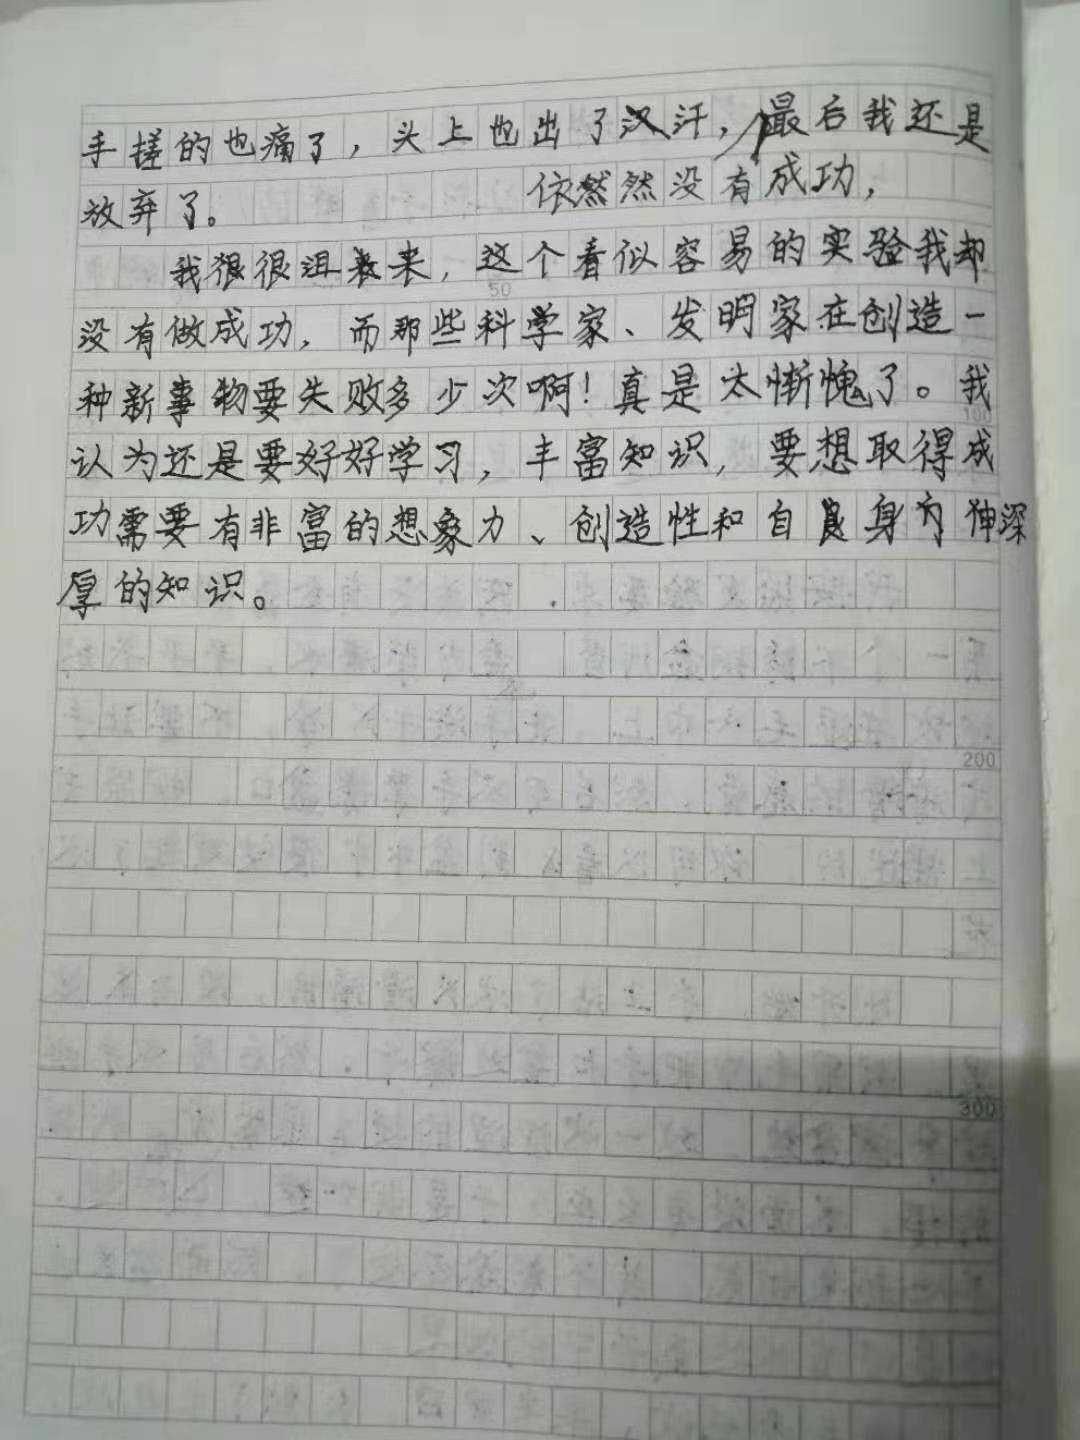 手搓的也痛了，头上也出了汉汗，最后我还是
放弃了。 依然然没有成功，
我狠很沮来，这个看似容易的实验我却
50
没有做成功，而那些科学家、发明家在创造一
种新事物要失败多少次啊！真是太惭愧了。我
100
认为还是要好好学习，丰富知识，要想取得成
功需要有非富的想象力、创造性和自身深
厚的知识。
200
300